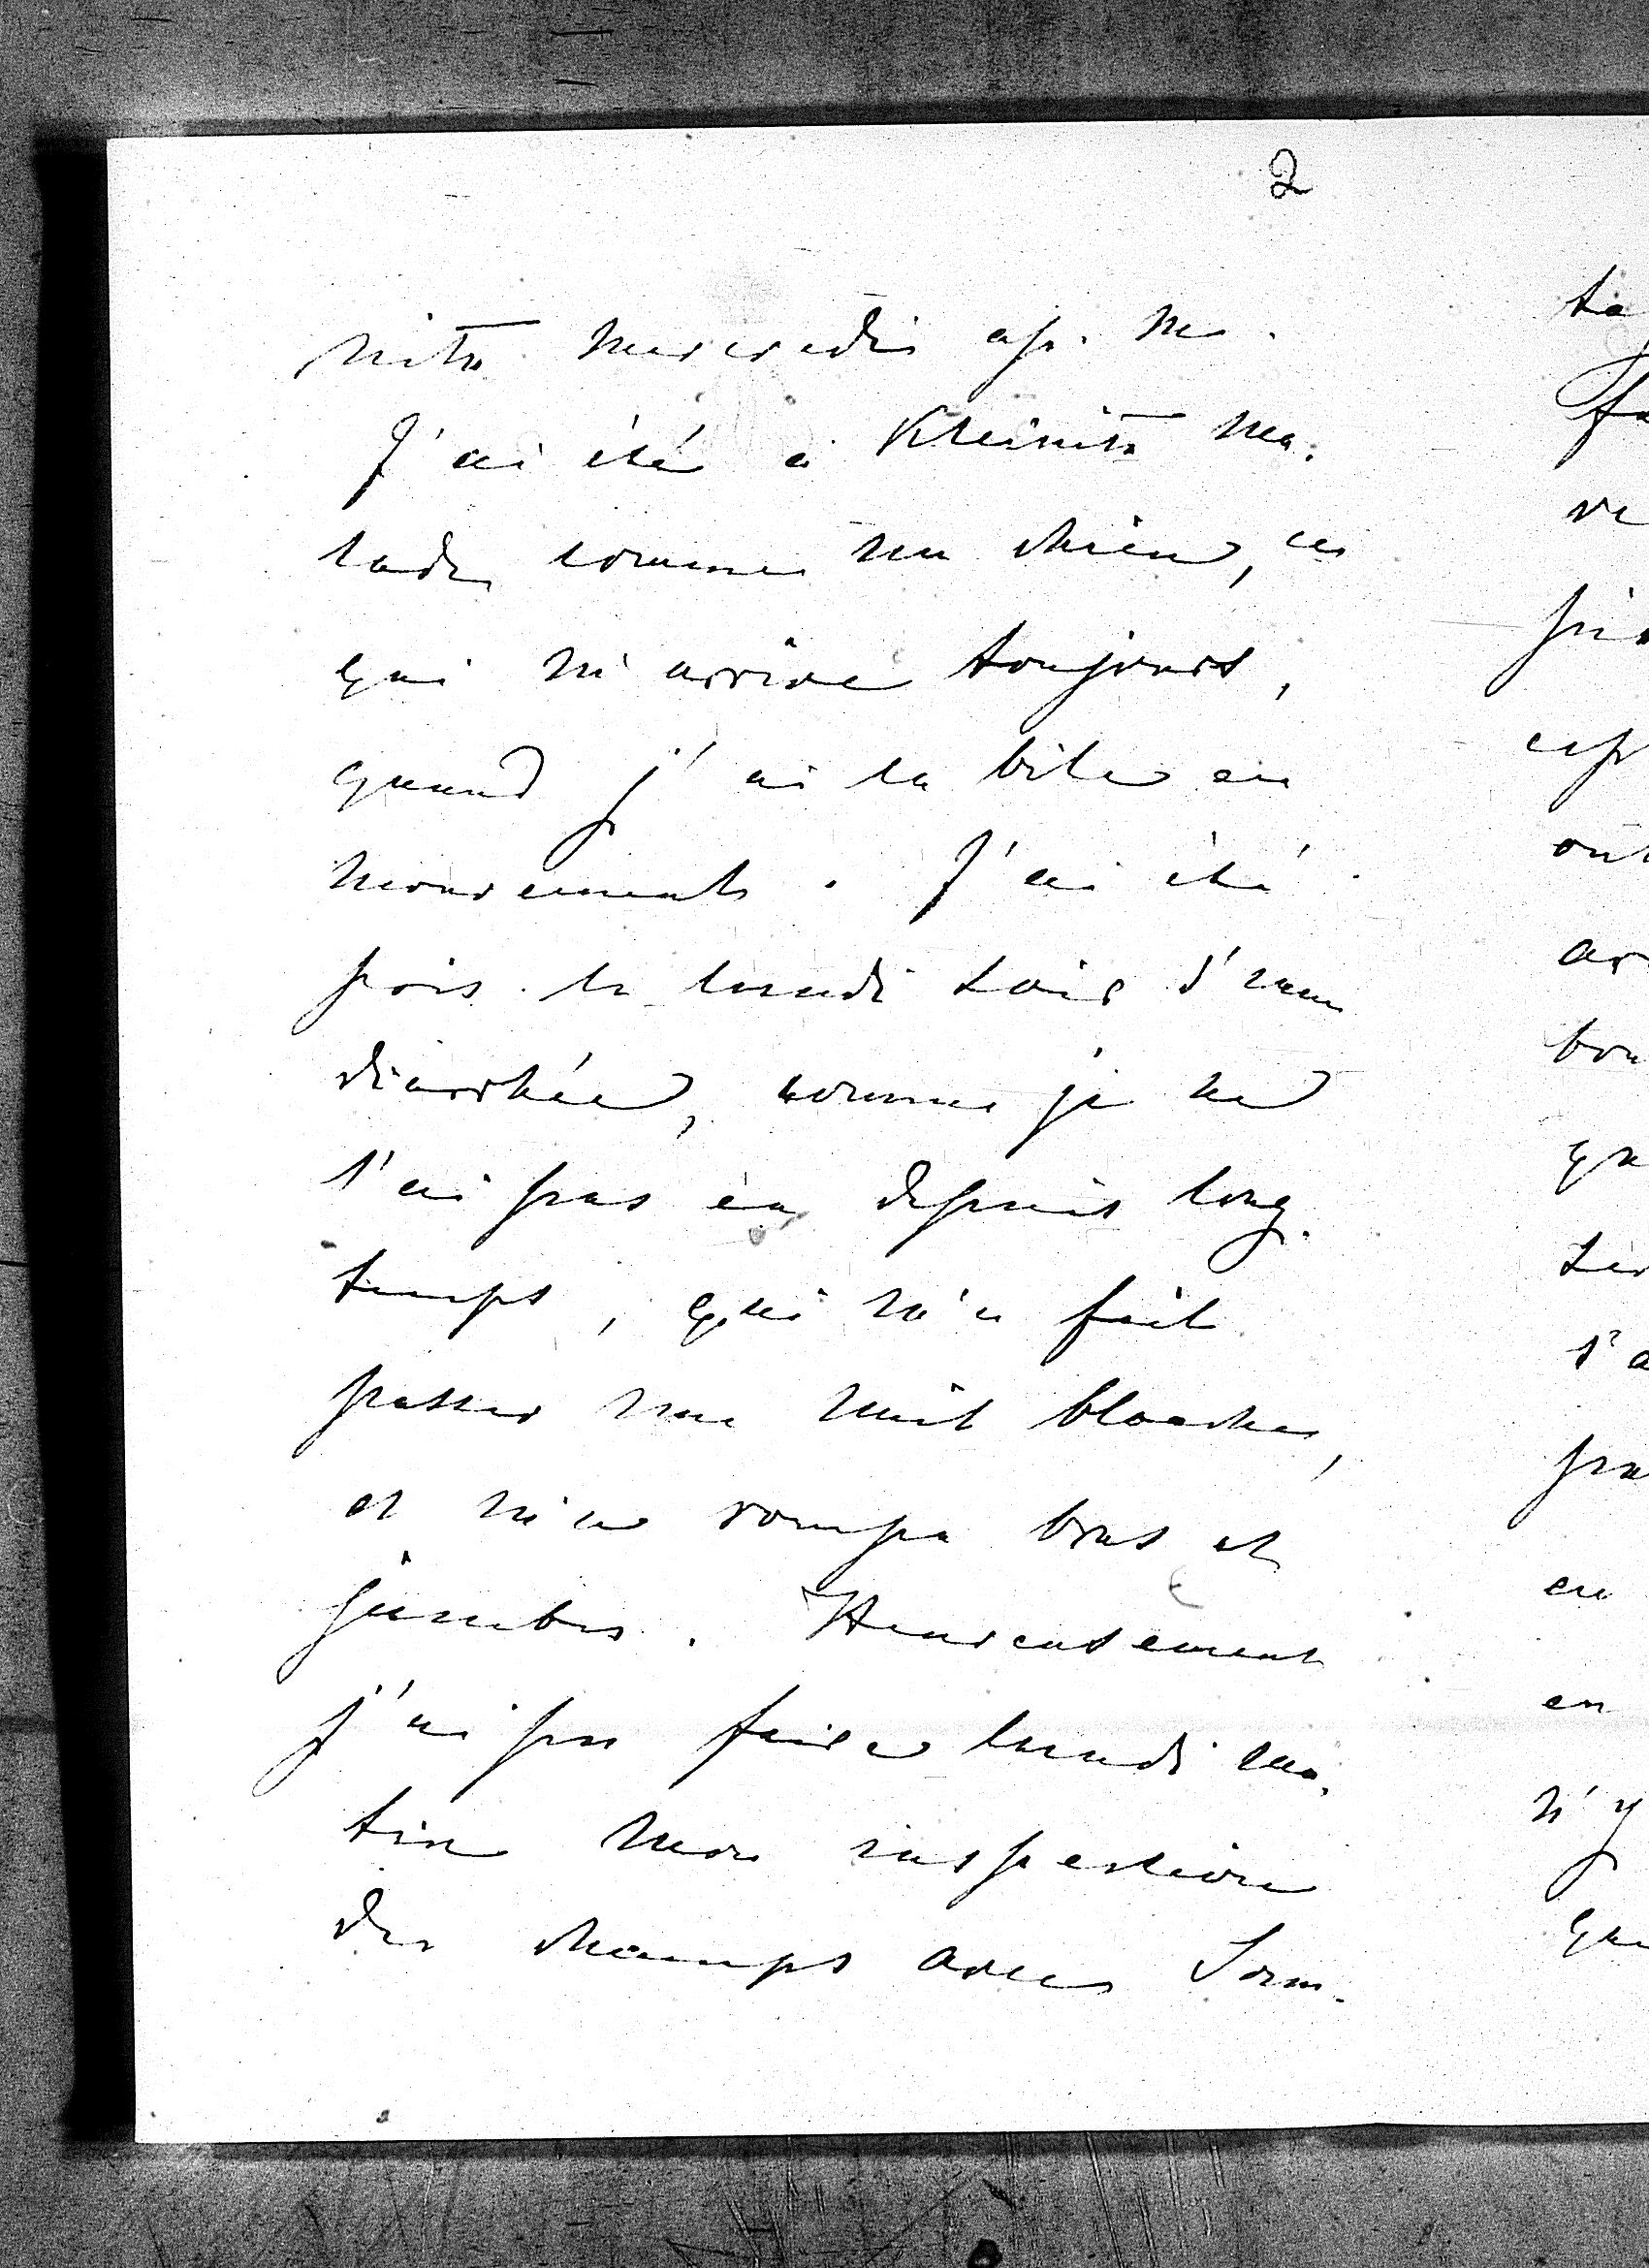 2
nitz mercredi ap. m.
J'ai été à Kleinitz ma-
lade comme un chien, ce
qui m'arrive toujours,
quand j'ai la bile en
mouvement. J'ai été
pris le lundi soir d'une
diarrhée, comme je ne
l'ai pas eu depuis long-
temps, qui m'a fait
passer une nuit blanche,
et m'a rompu bras et
jambes. Heureusement
j'ai pu faire lundi ma-
tin mon inspection
des champs avec Som-